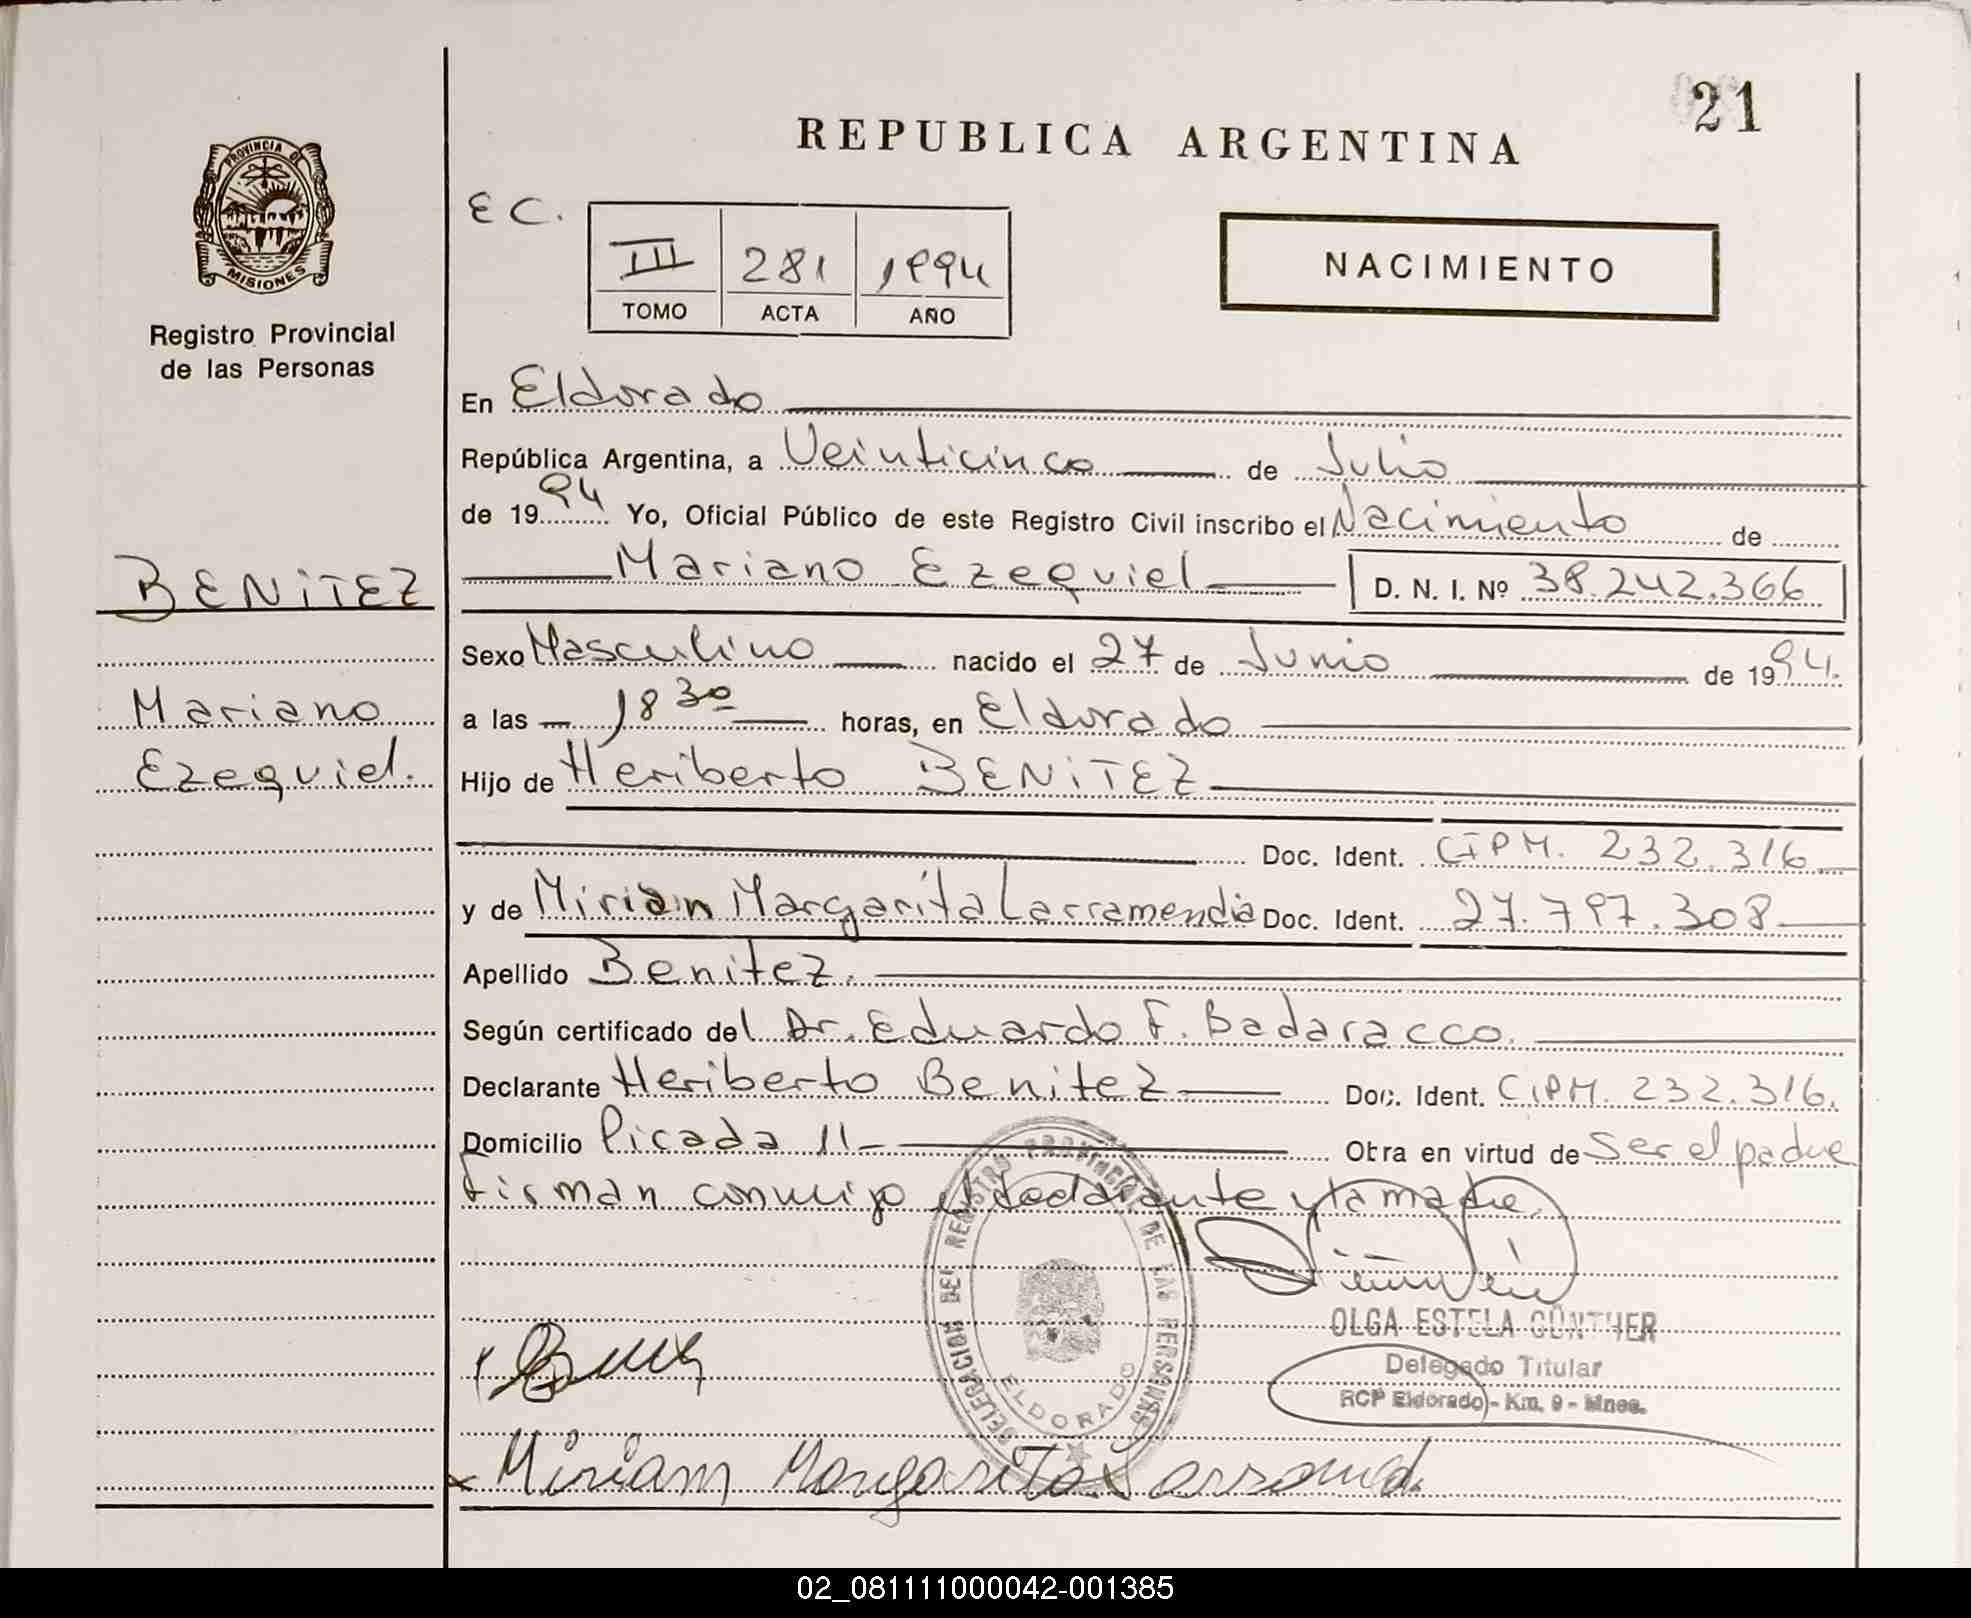 21
REPUBLICA ARGENTINA
PROVINCIA DE
MISIONES
Registro Provincial
de las Personas
EC.
III 281 1994
TOMO ACTA AÑO
NACIMIENTO
En Eldorado
República Argentina, a Veinticinco de Julio
de 1994 Yo, Oficial Público de este Registro Civil inscribo el Nacimiento de
BENITEZ
Mariano Ezequiel D. N. I. Nº 38.242.366
Sexo Masculino nacido el 27 de Junio de 1994.
Mariano
a las 18 30 horas, en Eldorado
Ezequiel.
Hijo de Heriberto BENITEZ
Doc. Ident. CIPM. 232.316
y de Mirian Margarita Larramendia Doc. Ident. 27.797.308
Apellido Benitez.
Según certificado del Dr. Eduardo F. Badaracco.
Declarante Heriberto Benitez Doc. Ident. CIPM. 232.316.
Domicilio Picada 11 Obra en virtud de Ser el padre
Firman conmigo el declarante y la madre.
DELEGACION DEL REGISTRO PROVINCIAL DE LAS PERSONAS
ELDORADO
OLGA ESTELA GÜNTHER
Delegado Titular
RCP Eldorado - Km. 9 - Mnes.
Miriam Margarita Larramend.
02_081111000042-001385